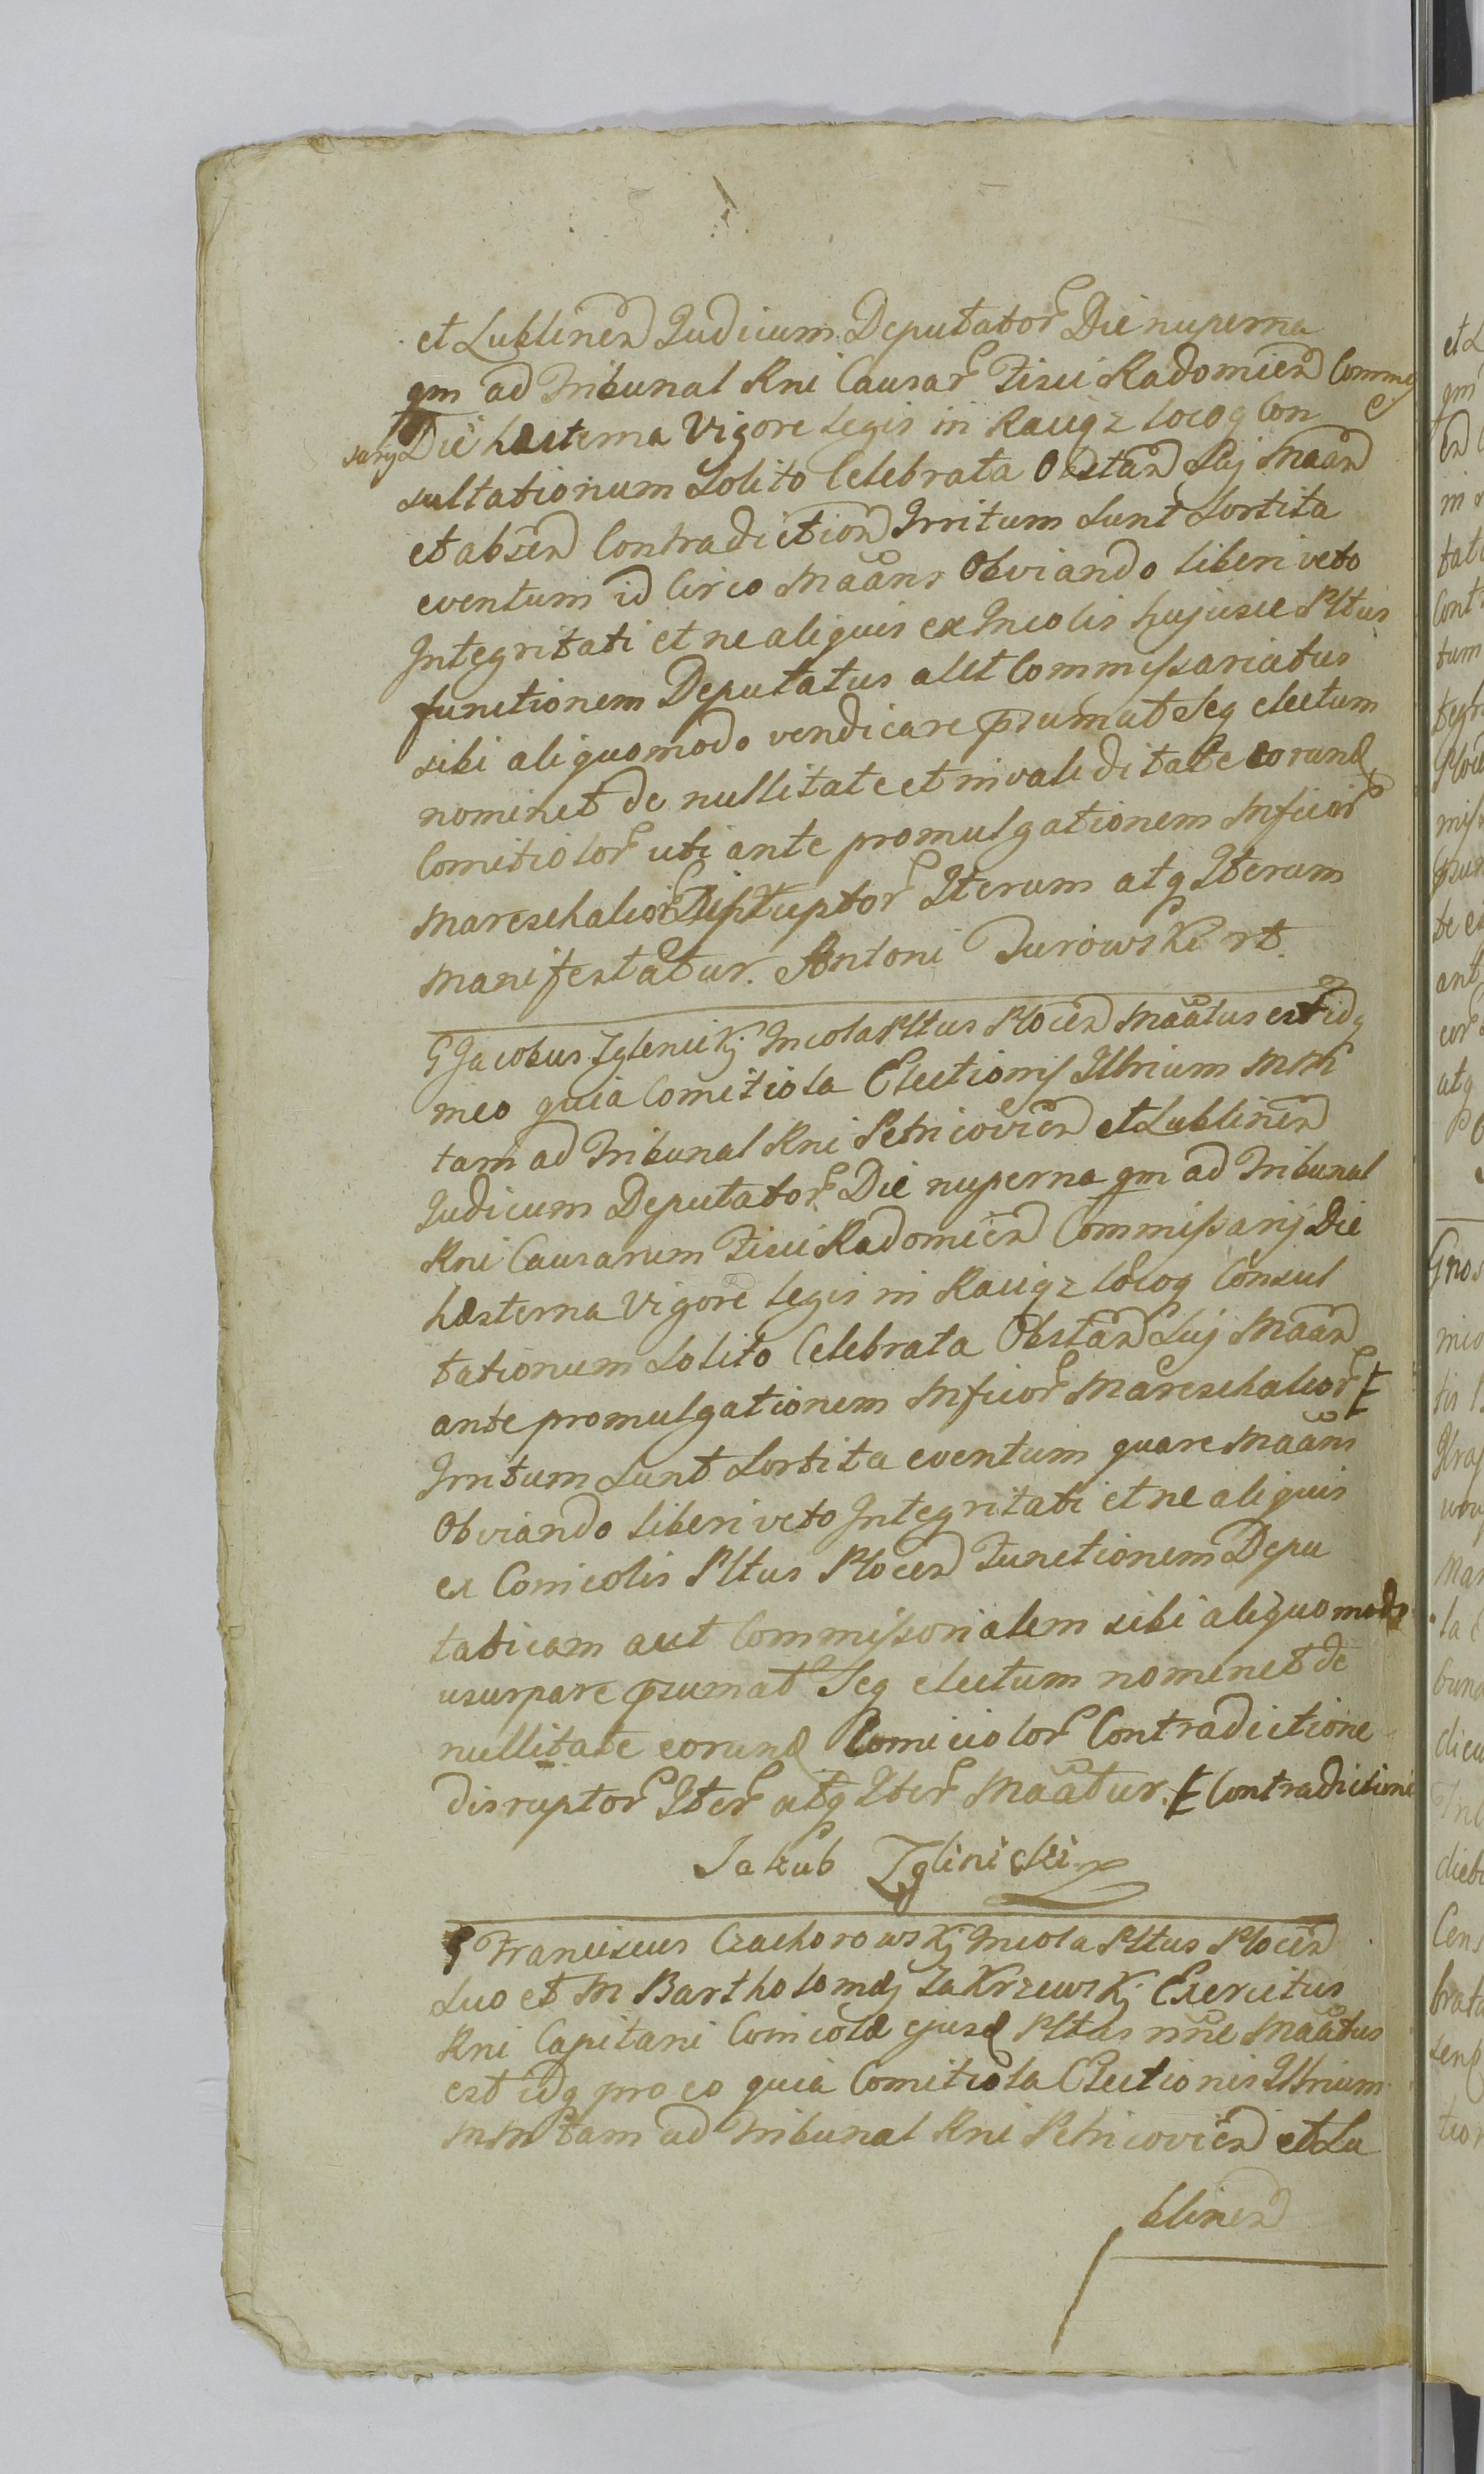 et Lublinen Judicum Deputator Die nuperna
qm ad Tribunal Rni Causar Fisci Radomien Commis
sarij Die hæsterna Vigore legis in Raciąz locoq Con
sultationum Solito Celebrata Obstan Suj Maan
et absen Contradiction Irritum sunt Sortita
eventum id Circo Maans Obviando liberi veto
Integritati et ne aliquis ex Incolis hujusce Pltus
functionem Deputatus alet Commissariatus
sibi aliquomodo vendicare psumat Seq electum
nominet de nullitate et invaliditate eorund
Comitiolor uti ante promulgationem Inficior
Mareschalcor Disruptor Iterum atq Iterum
manifestatur. Antoni Turowski rt.
G Jacobus Zglenickj Incola Pltus Plocen Maatus est idq
ineo quia Comitiola Electionis Illrium MM
tam ad Tribunal Rni Petricovien et Lublinen
Judicum Deputator Die nuperna qm ad Tribunal
Rni Causarum Fisci Radomien Commissarij Die
hæsterna Vigore legis in Raciąz locoq Consul
tationum Solito Celebrata Obstan Suj Maan
ante promulgationem Inficior Mareschalcor
Irritum sunt Sortita eventum quare Maans
Obviando liberi veto Integritati et ne aliquis
ex Conicolis Pltus Plocen Functionem Depu
taticam aut Commissorialem sibi aliquomodo
usurpare psumat Seq electum nominet de
nullitate eorund Comiciolor Contradictione
disruptor Iter atq Iter Maatur. Contradictione
Jakub Zglinicki
G Franciscus Czachorowskj Incola Pltus Plocen
Suo et M Bartholomæj Zakrzewskj Exercitus
Rni Capitani Conicolæ ejusd Pltus nne Maatus
est idq pro eo quia Comitiola Electionis Illrium
MM tam ad Tribunal Rni Petricovien et Lu
blinen